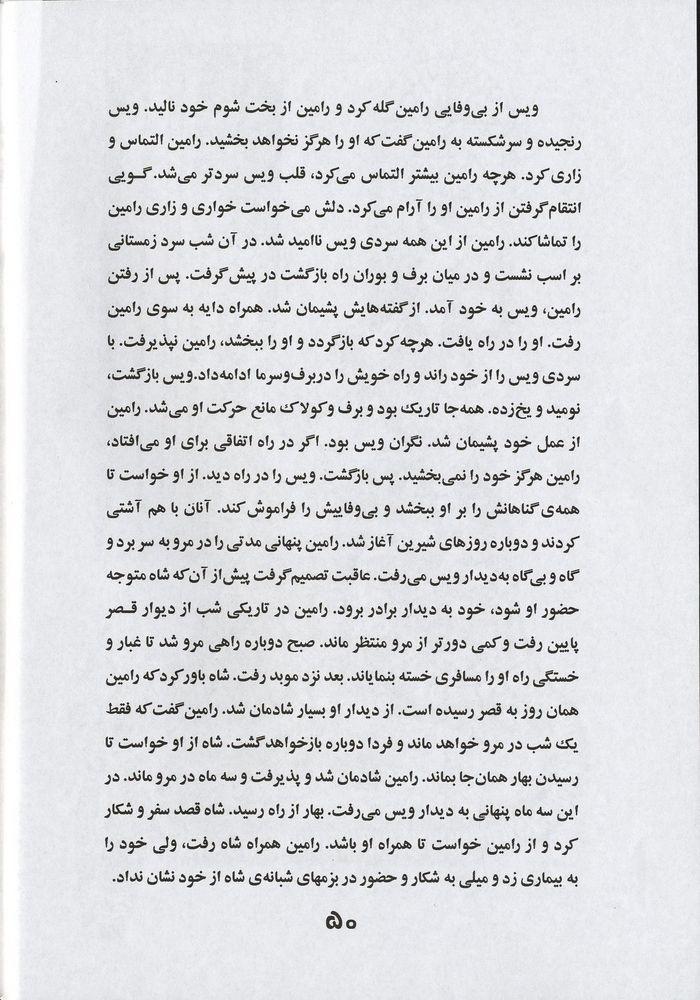 ویس از بی‌وفایی رامین گله کرد و رامین از بخت شوم خود نالید. ویس
رنجیده و سرشکسته به رامین گفت که او را هرگز نخواهد بخشید. رامین التماس و
زاری کرد. هرچه رامین بیشتر التماس می‌کرد، قلب ویس سردتر می‌شد. گویی
انتقام گرفتن از رامین او را آرام می‌کرد. دلش می‌خواست خواری و زاری رامین
را تماشا کند. رامین از این همه سردی ویس ناامید شد. در آن شب سرد زمستانی
بر اسب نشست و در میان برف و بوران راه بازگشت در پیش گرفت. پس از رفتن
رامین، ویس به خود آمد. از گفته‌هایش پشیمان شد. همراه دایه به سوی رامین
رفت. او را در راه یافت. هرچه کرد که بازگردد و او را ببخشد، رامین نپذیرفت. با
سردی ویس را از خود راند و راه خویش را در برف و سرما ادامه داد. ویس بازگشت،
نومید و یخ‌زده. همه‌جا تاریک بود و برف و کولاک مانع حرکت او می‌شد. رامین
از عمل خود پشیمان شد. نگران ویس بود. اگر در راه اتفاقی برای او می‌افتاد،
رامین هرگز خود را نمی‌بخشید. پس بازگشت. ویس را در راه دید. از او خواست تا
همه‌ی گناهانش را بر او ببخشد و بی‌وفاییش را فراموش کند. آنان با هم آشتی
کردند و دوباره روزهای شیرین آغاز شد. رامین پنهانی مدتی را در مرو به سر برد و
گاه و بی‌گاه به دیدار ویس می‌رفت. عاقبت تصمیم گرفت پیش از آن که شاه متوجه
حضور او شود، خود به دیدار برادر برود. رامین در تاریکی شب از دیوار قصر
پایین رفت و کمی دورتر از مرو منتظر ماند. صبح دوباره راهی مرو شد تا غبار و
خستگی راه او را مسافری خسته بنمایاند. بعد نزد موبد رفت. شاه باور کرد که رامین
همان روز به قصر رسیده است. از دیدار او بسیار شادمان شد. رامین گفت که فقط
یک شب در مرو خواهد ماند و فردا دوباره بازخواهد گشت. شاه از او خواست تا
رسیدن بهار همان‌جا بماند. رامین شادمان شد و پذیرفت و سه ماه در مرو ماند. در
این سه ماه پنهانی به دیدار ویس می‌رفت. بهار از راه رسید. شاه قصد سفر و شکار
کرد و از رامین خواست تا همراه او باشد. رامین همراه شاه رفت، ولی خود را
به بیماری زد و میلی به شکار و حضور در بزمهای شبانه‌ی شاه از خود نشان نداد.
۵۰